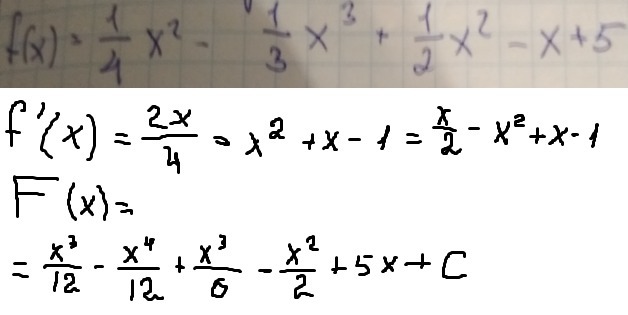 f(x) = 1/4 x² - 1/3 x³ + 1/2 x² - x + 5
f'(x) = 2x/4 - x² + x - 1 = x/2 - x² + x - 1
F(x) =
= x³/12 - x⁴/12 + x³/6 - x²/2 + 5x + C